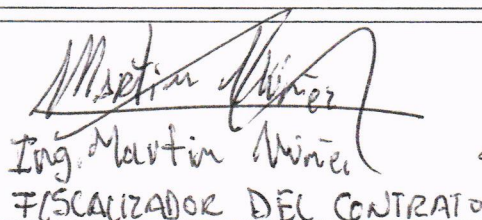 Martin Muñez
Ing. Martin Muñez
FISCALIZADOR DEL CONTRATO